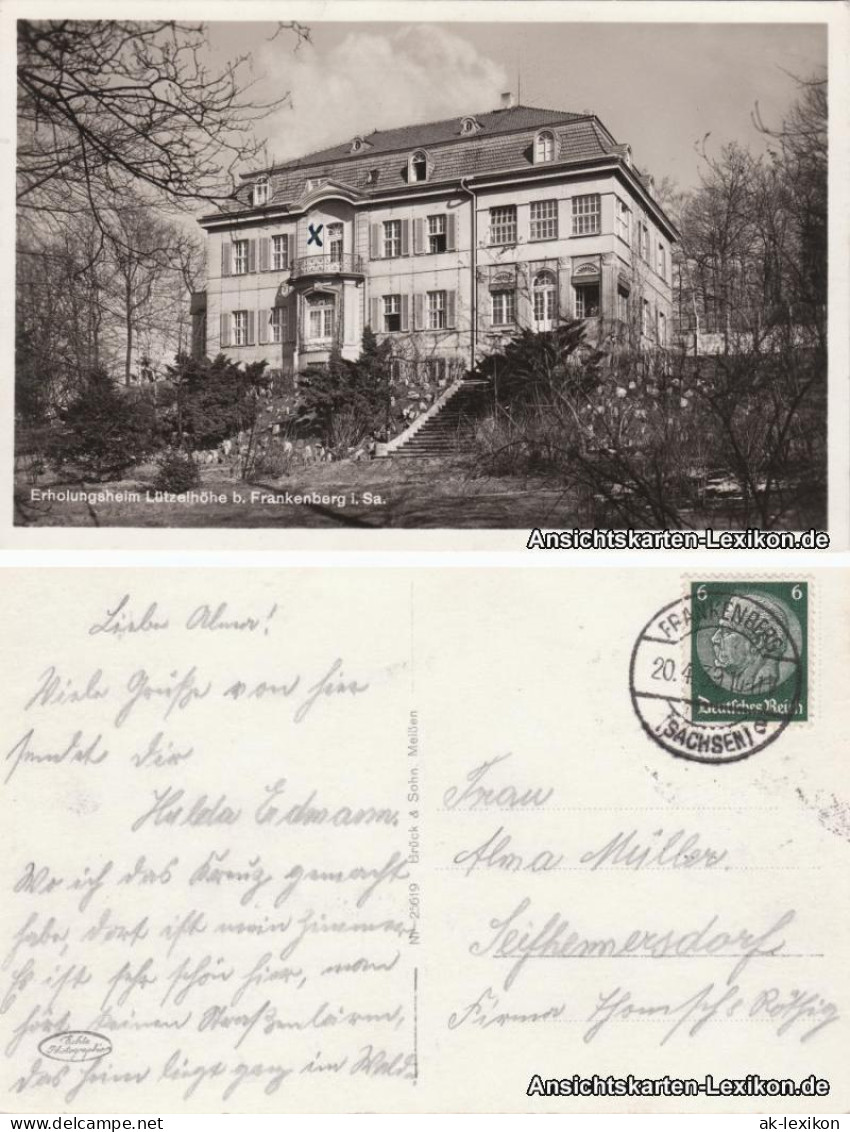 X
Erholungsheim Lützelhöhe b. Frankenberg i. Sa.
Ansichtskarten-Lexikon.de
Liebe Alma!
Viele Grüße von hier
sendet dir
Hulda Erdmann.
Wo ich das Kreuz gemacht
habe, dort ist mein Zimmer
Es ist sehr schön hier, man
hört keinen Straßenlärm,
das Heim liegt ganz im Walde
Echte Photographie
Nr. 25619 Brück & Sohn, Meißen
6 6
Deutsches Reich
FRANKENBERG
20.4.
(SACHSEN)
Frau
Alma Müller.
Seifhennersdorf.
Firma Röthig
Ansichtskarten-Lexikon.de
www.delcampe.net
ak-lexikon